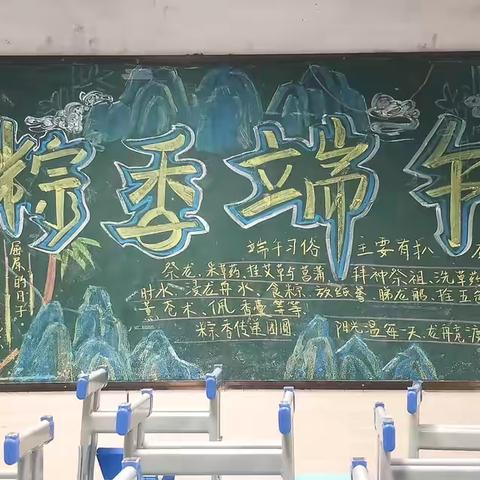 粽季端午
端午习俗 主要有扒
祭龙、采草药、挂艾草与菖蒲、拜神祭祖、洗草药
时水、浸龙舟水、食粽、放纸鸢、睇龙船、拴五色
薰苍术、佩香囊等等
粽香传递团圆 阳光温每天龙舟竞渡
屈原的日子